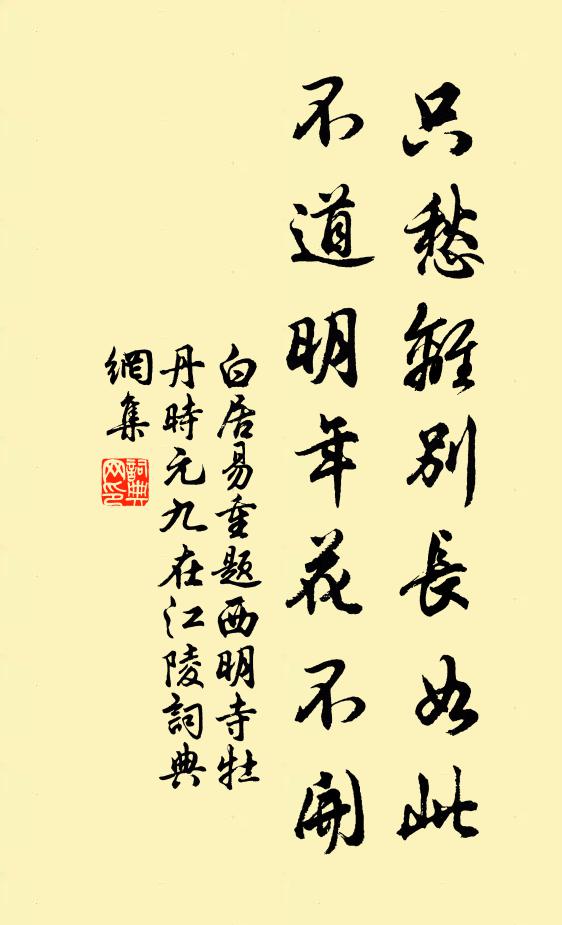 只愁離別長如此
不道明年花不開
白居易重題西明寺牡
丹時元九在江陵詞典
網集
詞典
网印